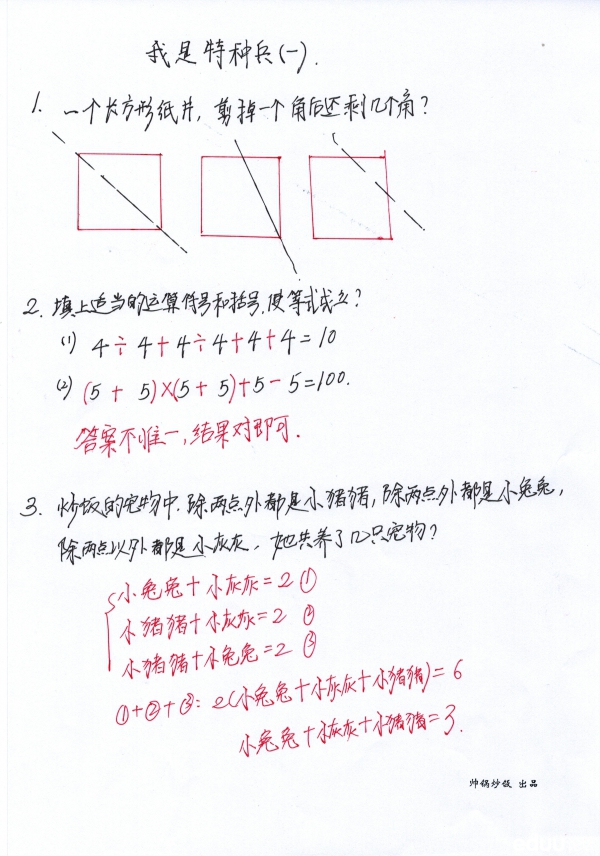 我是特种兵(一).
1. 一个长方形纸片, 剪掉一个角后还剩几个角?
2. 填上适当的运算符号和括号,使等式成立?
(1) 4÷4+4÷4+4+4=10
(2) (5+5)×(5+5)+5-5=100.
答案不唯一,结果对即可.
3. 炒饭的宠物中,除两点外都是小猪猪,除两点外都是小兔兔,
除两点以外都是小灰灰,她共养了几只宠物?
小兔兔+小灰灰=2 ①
小猪猪+小灰灰=2 ②
小猪猪+小兔兔=2 ③
①+②+③: 2(小兔兔+小灰灰+小猪猪)=6
小兔兔+小灰灰+小猪猪=3.
帅锅炒饭 出品